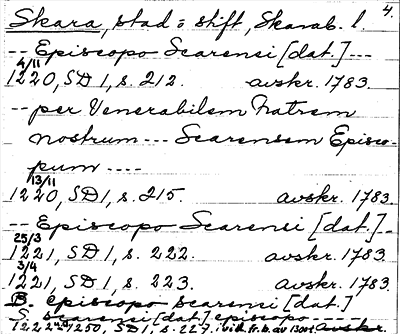 4.
Skara, stad o stift, Skarab. l.
-- Episcopo Scarensi [dat.] ---
4/11
1220, SD 1, s. 212. avskr. 1783.
-- per Venerabilem Fratrem
nostrum --- Scarensem Episco-
pum ----
13/11
1220, SD 1, s. 215. avskr. 1783.
-- Episcopo Scarensi [dat.] --
25/3
1221, SD 1, s. 222. avskr. 1783.
3/4
1221, SD 1, s. 223. avskr. 1783.
B. episcopo scarensi [dat.]
S. scarensi [dat.] episcopo ----
1250, SD 1, s. 227. avskr.